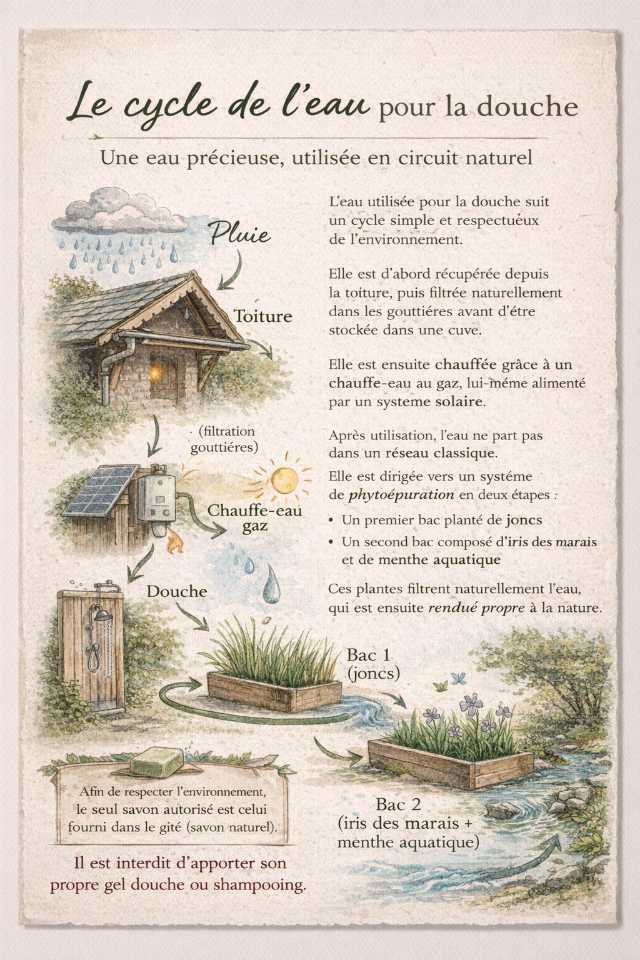 Le cycle de l'eau pour la douche
Une eau précieuse, utilisée en circuit naturel
Pluie
Toiture
(filtration
gouttiéres)
Chauffe-eau
gaz
Douche
Bac 1
(joncs)
Bac 2
(iris des marais +
menthe aquatique)
L'eau utilisée pour la douche suit
un cycle simple et respectueux
de l'environnement.
Elle est d'abord récupérée depuis
la toiture, puis filtrée naturellement
dans les gouttiéres avant d'étre
stockée dans une cuve.
Elle est ensuite chauffée grâce à un
chauffe-eau au gaz, lui-méme alimenté
par un systeme solaire.
Après utilisation, l'eau ne part pas
dans un réseau classique.
Elle est dirigée vers un systéme
de phytoépuration en deux étapes :
• Un premier bac planté de joncs
• Un second bac composé d'iris des marais
et de menthe aquatique
Ces plantes filtrent naturellement l'eau,
qui est ensuite rendué propre à la nature.
Afin de respecter l'environnement,
le seul savon autorisé est celui
fourni dans le gité (savon naturel).
Il est interdit d'apporter son
propre gel douche ou shampooing.